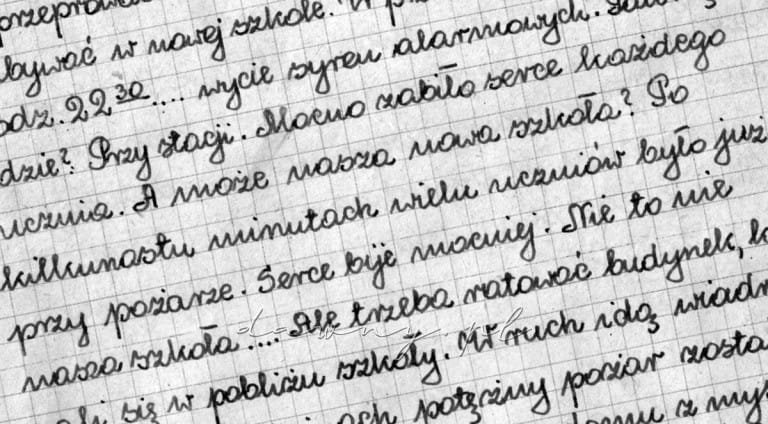 bywać w nowej szkole.
odz. 22³⁰.... wycie syren alarmowych.
dzie? Przy stacji. Mocno zabiło serce każdego
ucznia. A może nasza nowa szkoła? Po
kilkunastu minutach wielu uczniów było już
przy pożarze. Serce bije mocniej. Nie to nie
nasza szkoła.... Ale trzeba ratować budynek,
się w pobliżu szkoły. W ruch idą wiadr
potężny pożar zosta
z myś